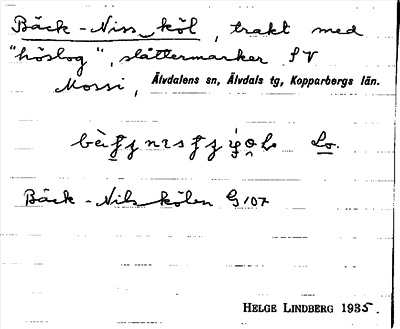 Bäck-Niss köl, trakt med
"höslog", slåttermarker SV
Mossi, Älvdalens sn, Älvdals tg, Kopparbergs län.
Lo.
Bäck-Nilskölen G 107
HELGE LINDBERG 1935.